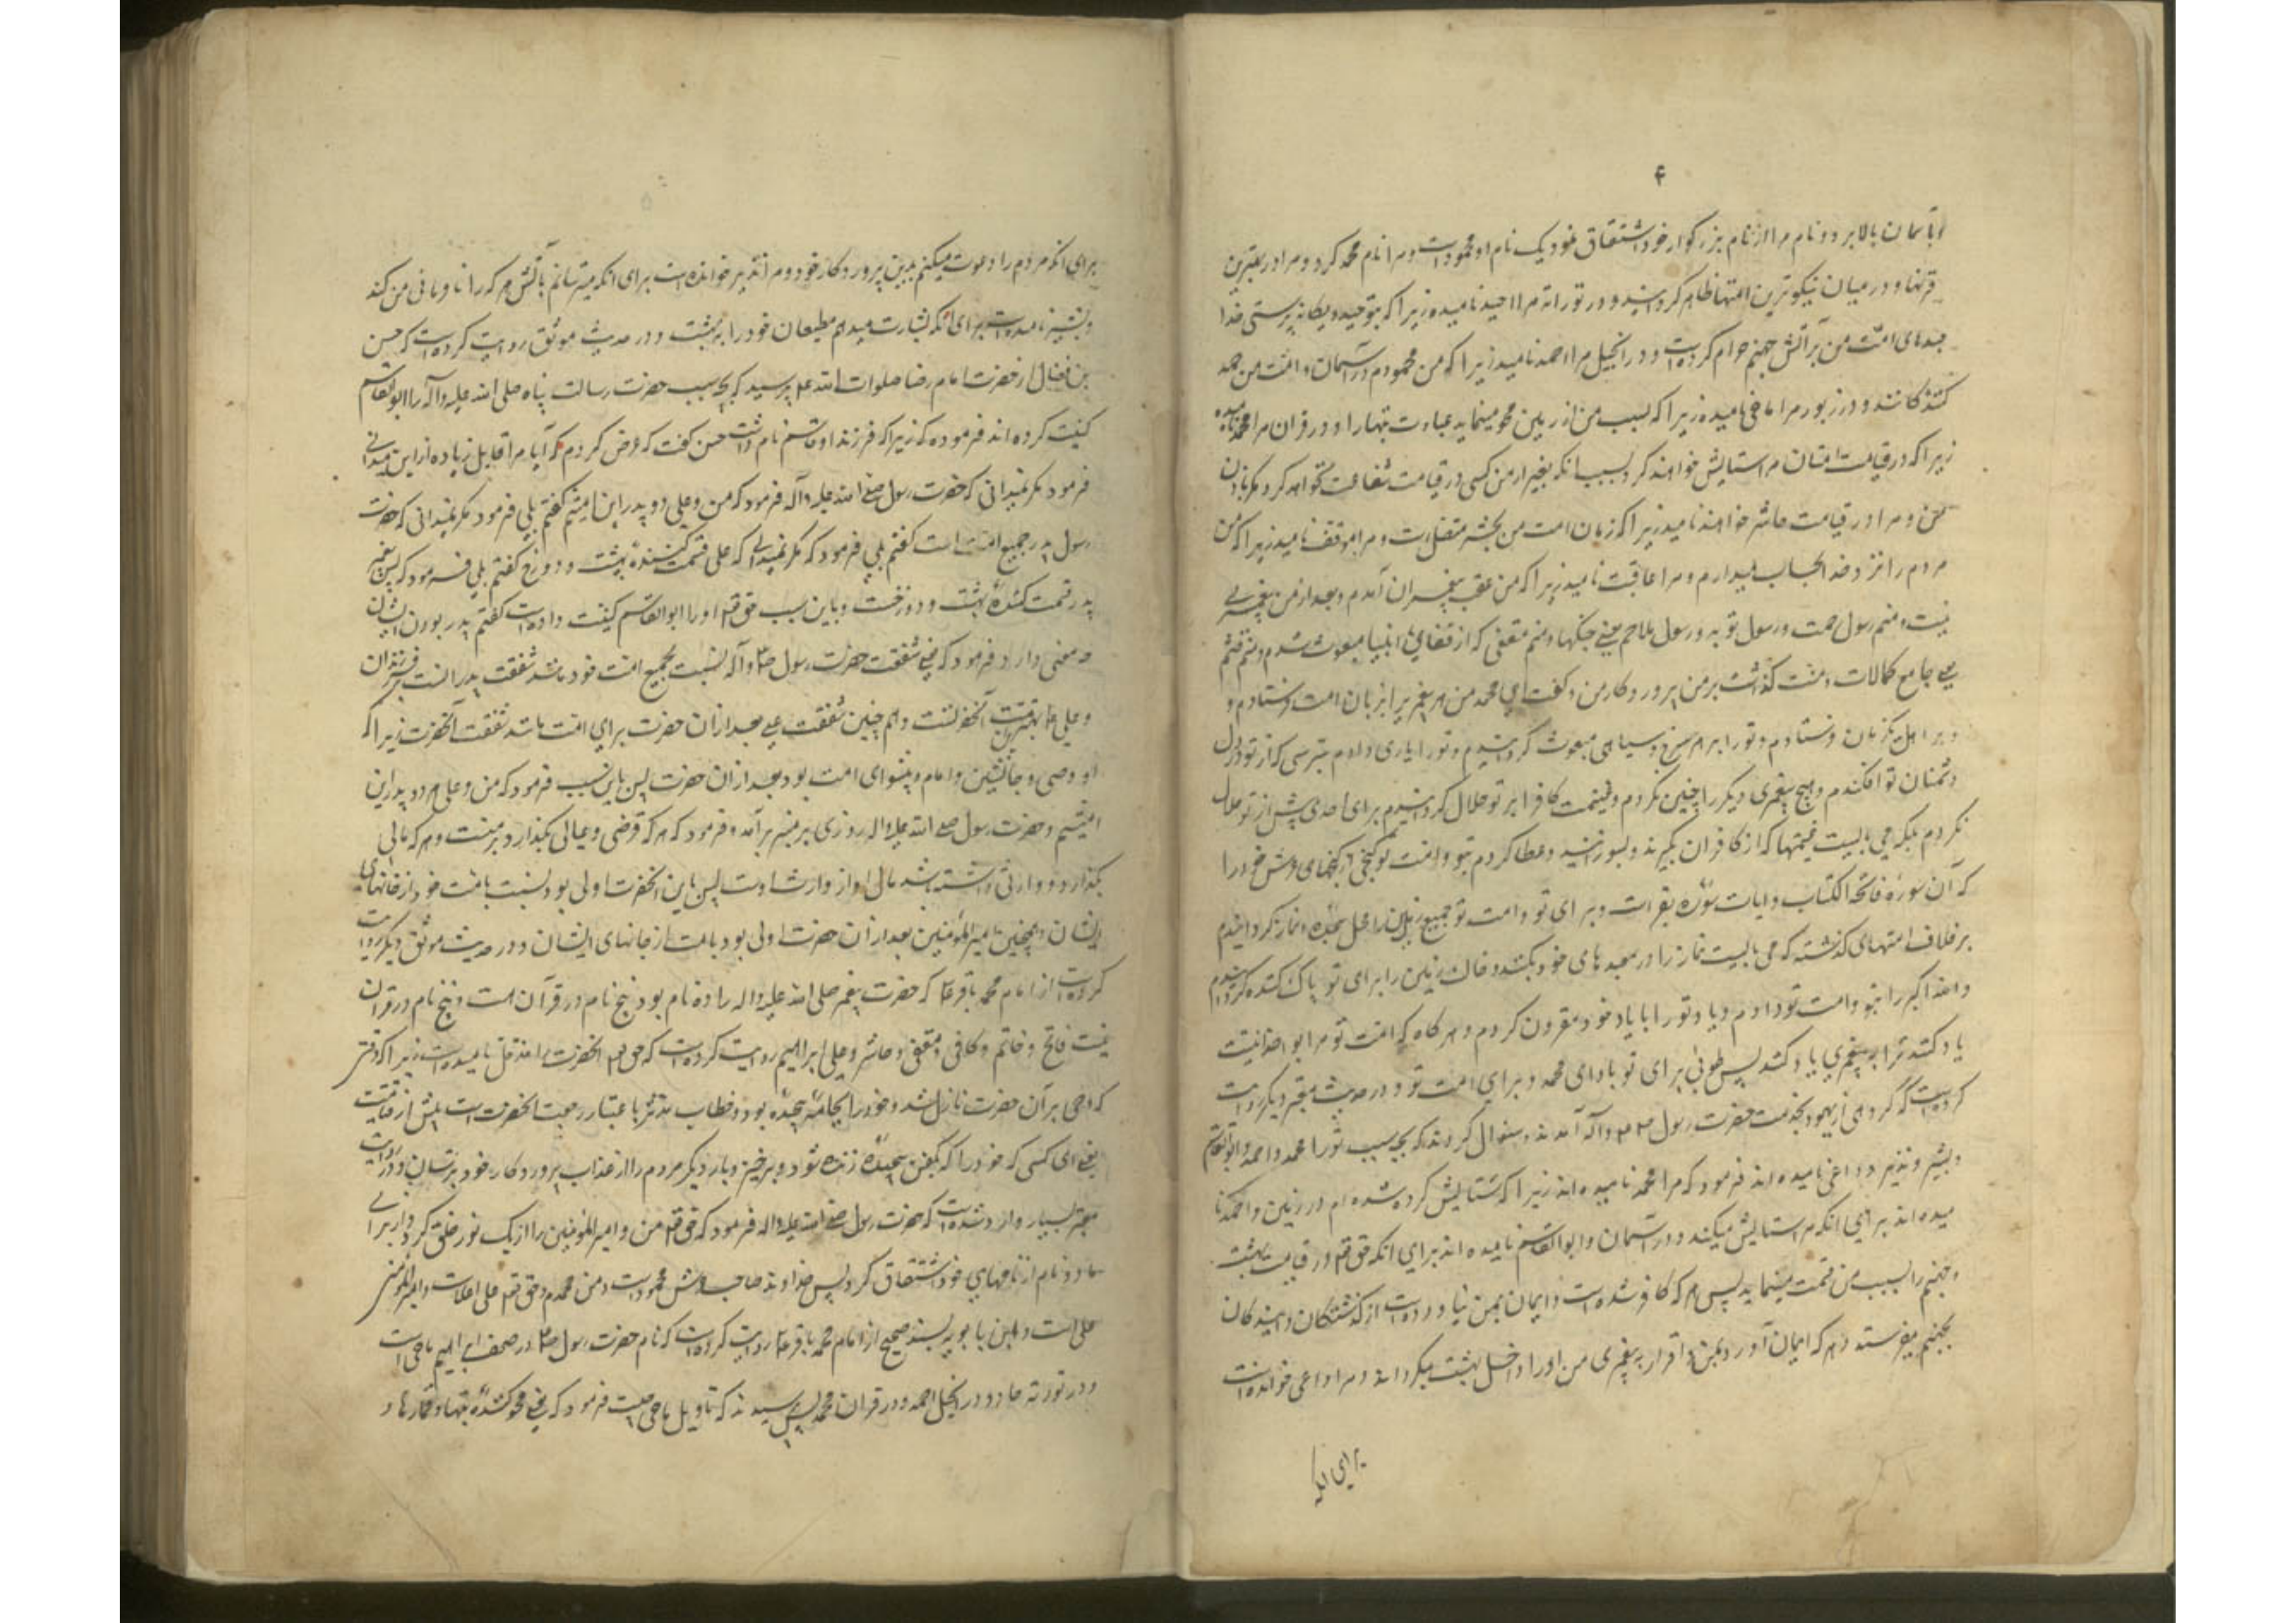 ۴
بآسمان بالا برد و نام مرا از نام بزرگوار خود اشتقاق نمود یک نام او محمودست و مرا نام محمد کرد و مرا در بهترین
قرنها و در میان نیکوترین امتها ظاهر گردانید و در توراة مرا احید نامیده زیرا که بتوحید و یگانه پرستی خدا
جسدهای امت من بر آتش جهنم حرام کرده‌است و در انجیل مرا احمد نامید زیرا که من محمودم در آسمان و امت من حمد
کنندگانند و در زبور مرا ماحی نامیده زیرا که بسبب من از زمین محو مینماید عبادت بتهارا و در قران مرا محمد نامیده
زیرا که در قیامت امتان مرا ستایش خواهند کرد بسبب انکه بغیر از من کسی در قیامت شفاعت نخواهد کرد مگر باذن
من و مرا در قیامت حاشر خواهند نامید زیرا که زمان امت من بحشر متصل است و مرا موقف نامید زیرا که من
مردم را نزد خدا بحساب میدارم و مرا عاقب نامید زیرا که من عقب پیغمبران آمدم و بعد از من پیغمبری
نیست و منم رسول رحمت و رسول توبه و رسول ملاحم یعنی جنگها و منم مقفی که از قفای انبیا مبعوث شدم و منم قثم
یعنی جامع کمالات و منت گذاشت بر من پرورگار من و گفت ای محمد من هر پیغمبر برا بزبان امت او فرستادم و
بر اهل یک زبان فرستادم و تو را بر هر سرخ و سیاهی مبعوث گردانیدم و تو را یاری دادم بترسی که از تو در دل
دشمنان تو افکندم و هیچ پیغمبری دیگر را چنین نکردم و غنیمت کافرا بر تو حلال گردانیدم برای احدی پیش از تو حلال
نکردم بلکه می بایست غنیمتها که از کافران بگیرند و بسوزانند و عطا کردم بتو و امت تو گنجی از گنجهای عرش خود را
که آن سوره فاتحة الکتاب و ایات سوره بقر است و برای تو و امت تو جمیع زمین را محل سجده و نماز گردانیدم
بر خلاف امتهای گذشته که می بایست نماز را در معبدهای خود بکنند و خاک زمین را برای تو پاک کننده گردانیدم
و الله اکبر را بتو و امت تو دادم و یاد تو را با یاد خود مقرون کردم و هر گاه که امت تو مرا بوحدانیت
یاد کنند ترا به پیغمبری یاد کنند پس طوبی برای تو باد ای محمد و برای امت تو و در حدیث معتبر دیگر روایت
کرده‌است که گروهی از یهود بخدمت حضرت رسول ص و آله آمدند و سئوال کردند که بچه سبب تو را محمد و احمد و ابوالقاسم
و بشیر و نذیر و داعی نامیده اند فرمود که مرا محمد نامیده اند زیرا که ستایش کرده شده ام در زمین و احمد نا
میده اند برای انکه مرا ستایش میکنند در آسمان و ابوالقاسم نامیده اند برای انکه حق تعالی در قیامت بهشت
و جهنم را بسبب من قسمت مینماید پس هر که کافر شده است و ایمان بمن نیاورده است از گذشتگان و ایندگان
بجهنم میفرستد و هر که ایمان آورد بمن و اقرار به پیغمبری من او را داخل بهشت میگرداند و مرا داعی خوانده است
برای انکه
برای انکه مردم را دعوت میکنم بدین پروردگار خود و مرا نذیر خوانده است برای انکه میترسانم باتش هر که را نافرمانی من کند
و بشیر نامیده است برای انکه بشارت میدهم مطیعان خود را به بهشت و در حدیث موثق روایت کرده است که حسن
بن فضال از حضرت امام رضا صلوات الله علیه پرسید که بچه سبب حضرت رسالت پناه صلی الله علیه و آله را ابوالقاسم
کنیت کرده اند فرموده که زیرا که فرزند او قاسم نام داشت حسن گفت که عرض کردم که آیا مرا قابل زیاده از این میدانی
فرمود مگر نمیدانی که حضرت رسول صلی الله علیه و آله فرمود که من و علی دو پدر این امتیم گفتم بلی فرمود مگر نمیدانی که حضرت
رسول پدر جمیع امت است گفتم بلی فرمود که مگر نمیدانی که علی قسمت کننده بهشت و دوزخ گفتم بلی فرمود که پس پیغمبر
پدر قسمت کننده بهشت و دوزخست و باین سبب حق تعالی او را ابوالقاسم کنیت داده است گفتم پدر بودن ایشان
چه معنی دارد فرمود که یعنی شفقت حضرت رسول ص و آله نسبت بجمیع امت خود مانند شفقت پدرانست بر فرزندان
و علی بهترین امت آنحضرتست و هم چنین شفقت علی بعد از ان حضرت برای امت مانند شفقت آنحضرت زیرا که
او وصی و جانشین و امام و پیشوای امت بود بعد از ان حضرت پس باین سبب فرمود که من و علی هر دو پدر این
امتیم و حضرت رسول صلی الله علیه و اله روزی بر منبر بر آمد و فرمود که هر که قرضی و عیالی بگذارد بر منست و هر که مالی
بگذارد و وارثی داشته باشد مال او از وارث اوست پس باین آنحضرت اولی بود نسبت بامت خود از جانهای
ایشان و همچنین امیر المؤمنین بعد از ان حضرت اولی بود بامت از جانهای ایشان و در حدیث موثق دیگر روایت
کرده است از امام محمد باقر ع که حضرت پیغمبر صلی الله علیه و اله را ده نام بود پنج نام در قرآن هست و پنج نام در قرآن
نیست فاتح و خاتم و کافی و مقفی و حاشر و علی ابن ابراهیم روایت کرده است که حق تعالی آنحضرت را مزمل نامیده است زیرا که وقتی
که وحی بر آن حضرت نازل شد خود را بجامه پیچیده بود و خطاب مدثر باعتبار رجعت آنحضرت است پیش از قیامت
یعنی ای کسی که خود را که بکفن پیچیده زنده شو و برخیز و بار دیگر مردم را از عذاب پروردگار خود بترسان و در روایت
معتبر بسیار وارد شده است که حضرت رسول صلی الله علیه و اله فرمود که حق تعالی من و امیر المؤمنین را از یک نور خلق کرد و از برای
ما دو نام از نامهای خود اشتقاق کرد پس خداوند صاحب عرش محمود است و من محمدم و حق تعالی علی اعلاست و امیر المؤمنین
علی است و ابن بابویه بسند صحیح از امام محمد باقر ع روایت کرده است که نام حضرت رسول ص در صحف ابراهیم ماحی است
و در توریة حاد و در انجیل احمد و در قران محمد پس پرسیدند که تاویل ماحی چیست فرمود که یعنی محو کننده بتها و قمارها و